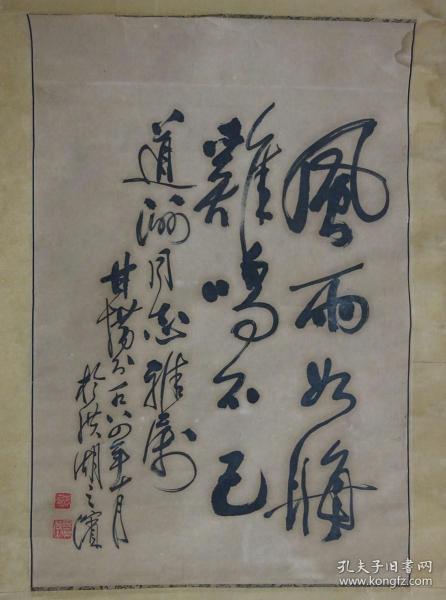 風雨如晦
雞鳴不已
道洲同志雅屬
甘㘰一九八四年十一月
於洪湖之濱
孔夫子旧书网
www.kongfz.com